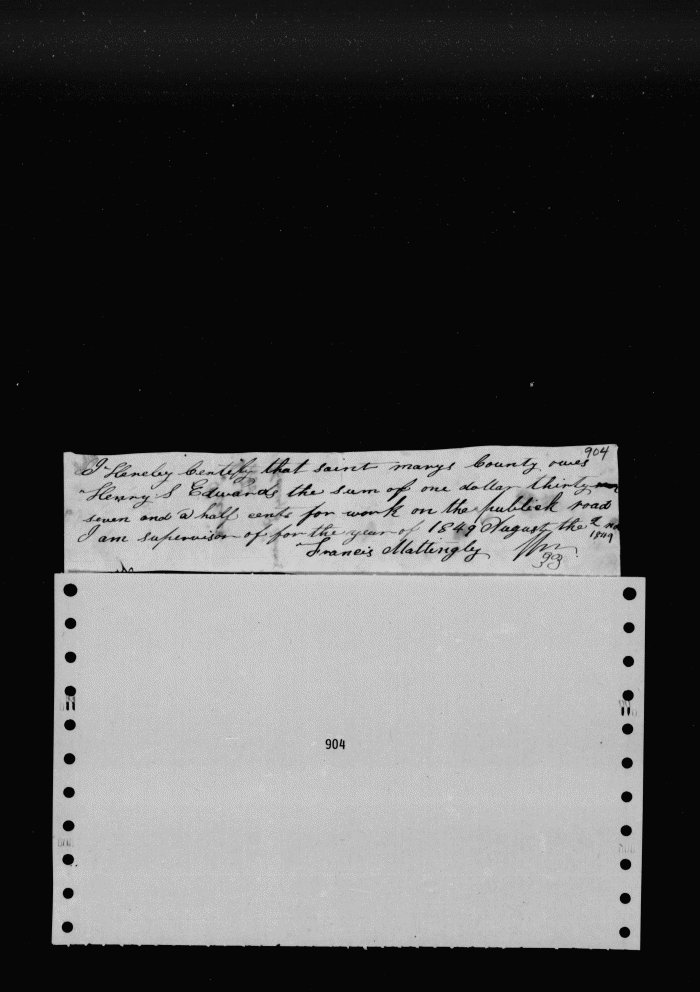 904
I Hereby Certify that saint marys County owes
Henry S Edwards the sum of one dollar thirty
seven and a half cents for work on the publick road
I am supervisor of for the year of 1849 August the 2
1849
Francis Mattingly
93
904